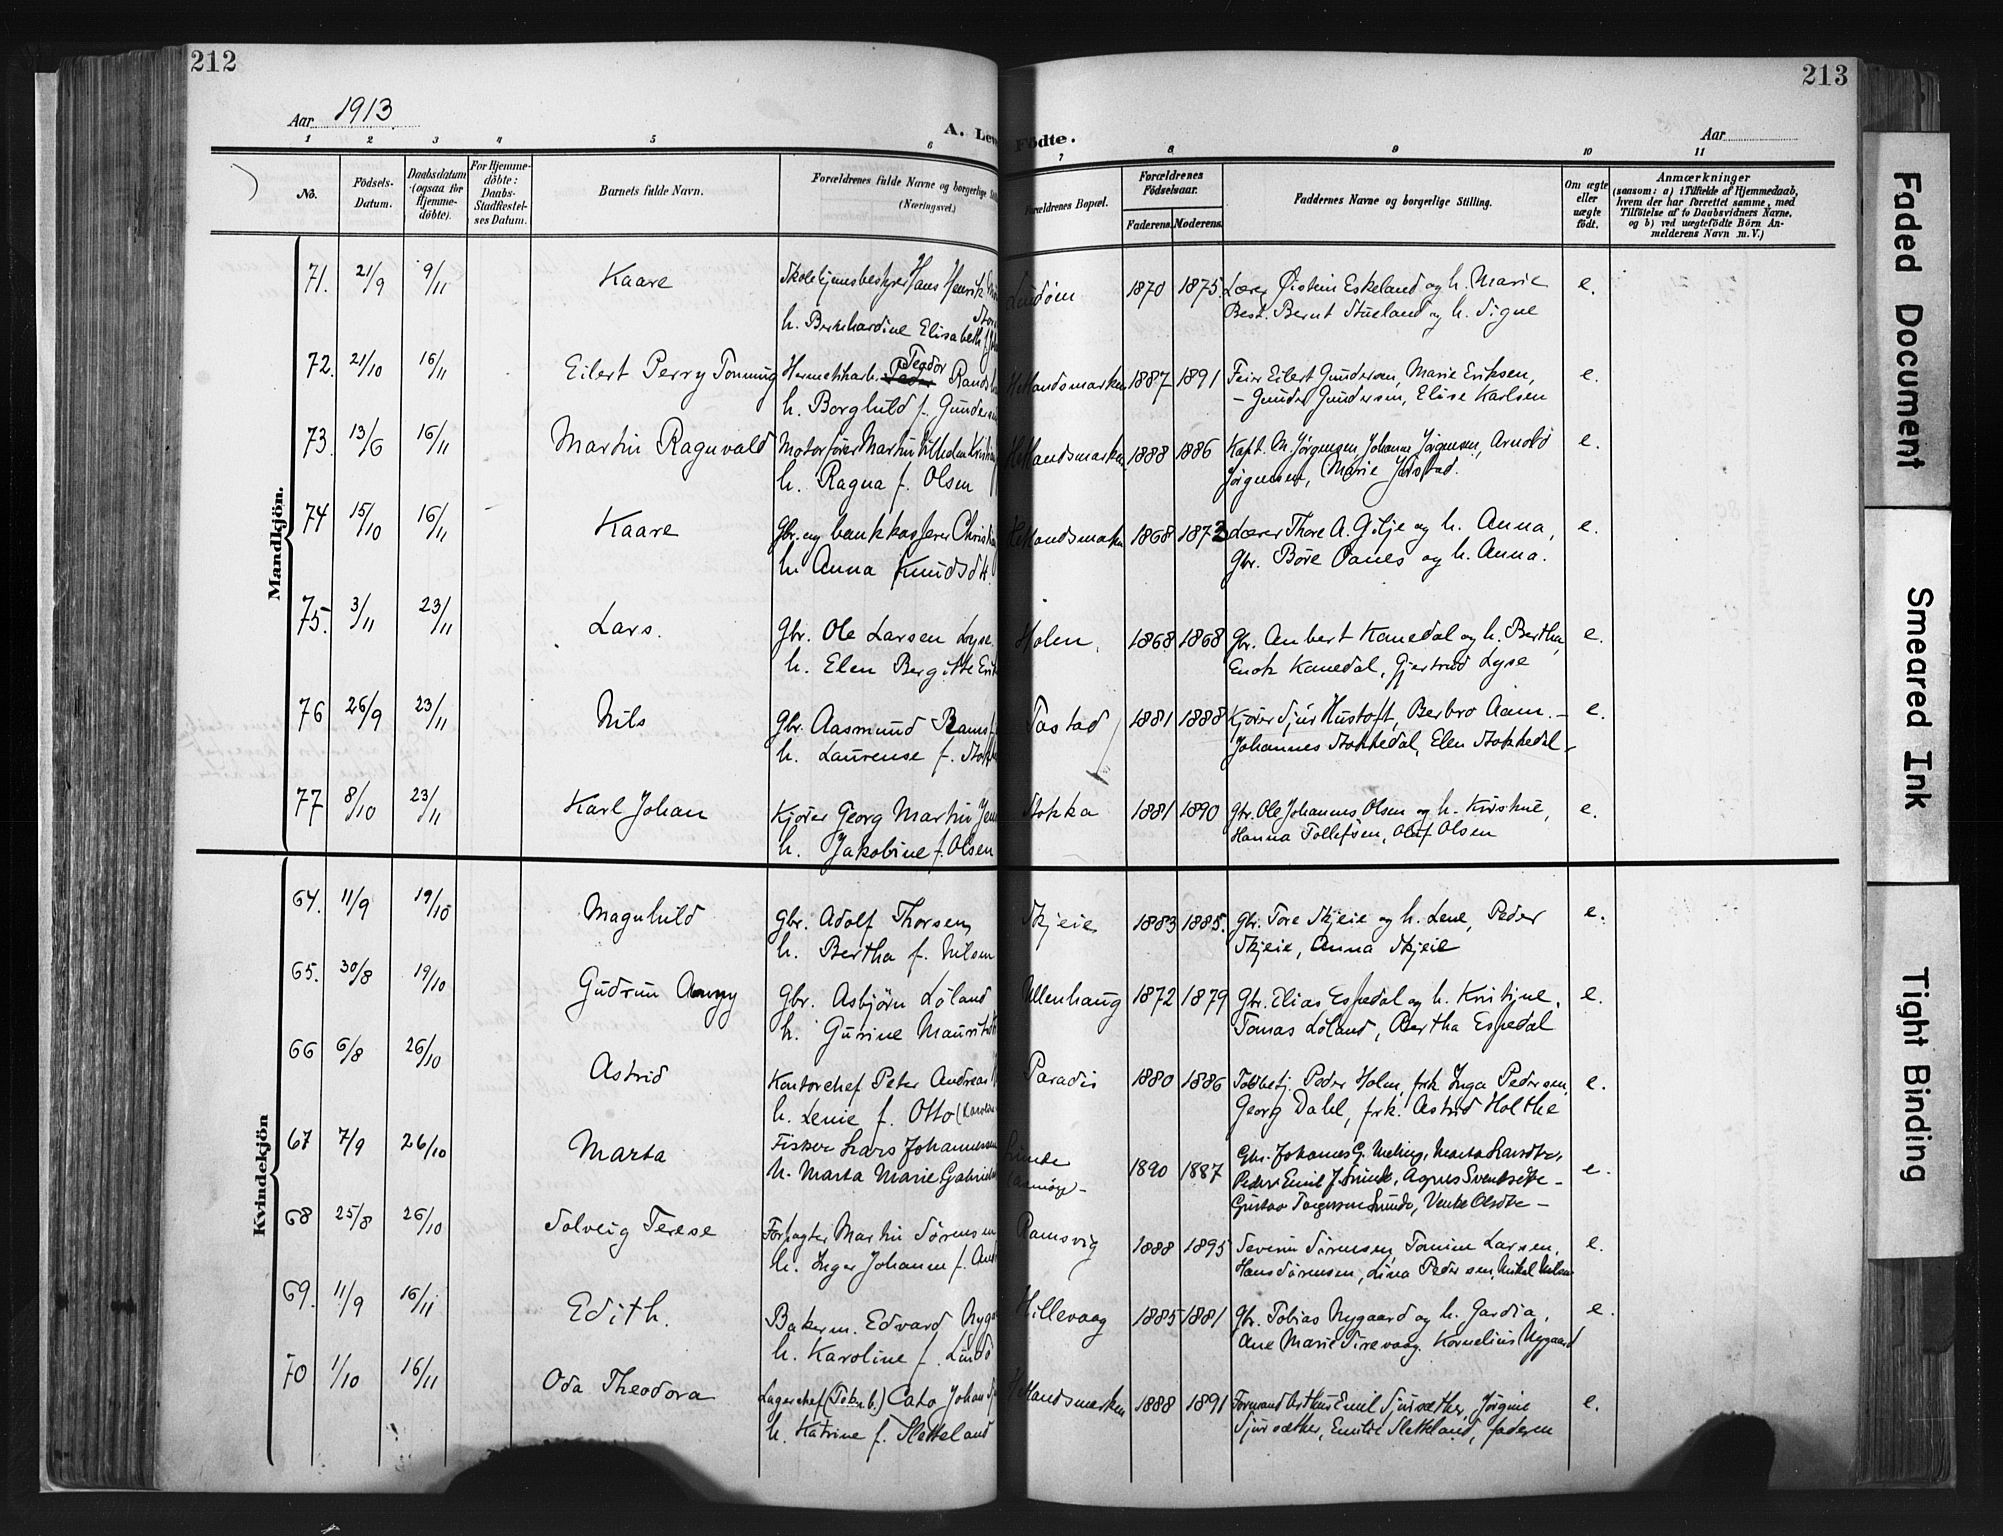 212
213
Aar 1913
A. Lev
Födte.
Aar
1 2 3 4 5 6 7 8 9 10 11
No.
Födsels-Datum.
Daabsdatum (ogsaa for Hjemme-döbte).
For Hjemme-döbte: Daabs-Stadfæstel-ses Datum.
Barnets fulde Navn.
Forældrenes fulde Navne og borgerlige
(Næringsvei.)
Forældrenes Bopæl.
Forældrenes Födselsaar.
Faderens. Moderens.
Faddernes Navne og borgerlige Stilling.
Om ægte eller uægte födt.
Anmærkninger
(saasom: a) i Tilfælde af Hjemmedaab,
hvem der har forrettet samme, med
Tilföielse af to Daabsvidners Navne,
og b) ved uægtefödte Börn An-
melderens Navn m. V.)
Mandkjön.
71. 21/9 9/11 Kaare Skolehjemsbestyrer Hans Henrik 1870 1875. Lærer Øistein Eskeland og h. Marie e.
h. Bernhardine Elisabeth f. Best. Bernt Stueland og h. Signe
72. 21/10 16/11 Eilert Perry Tonning Hermetikarb. Teodor Hetlandsmarken 1887 1891 Feier Eilert Gundersen, Marie Eriksen, e.
h. Borghild f. - Gunder Gundersen, Elise Karlsen
73. 13/6 16/11 Martin Ragnvald Motorfører Martin Vilhelm Hetlandsmarken 1888 1886 Kapt. M. Jørgensen, Johanne Jørgensen, Arnold e.
h. Ragna f. Olsen Jørgensen, Marie
74 15/10 16/11 Kaare Gbr. og bankkasserer Hetlandsmarken 1868 1873 Lærer Thore A. Gilje og h. Anna, e.
h. Anna Knudsdtt Gbr. Børe Oanes og h. Anna.
75. 3/11 23/11 Lars. Gbr. Ole Larsen Lyse Holen. 1868 1868 Gbr. Anbert Kanedal og h. Bertha, e.
h. Elen Bergitte Enok Kanedal, Gjertrud Lyse
76 26/9 23/11 Nils Gbr. Aasmund Tastad 1881 1888 Kjører Sjur Hustoft, Berbro Aam. - e.
h. Laurense f. Johannes Stokkedal, Elen Stokkedal -
77 8/10 23/11 Karl Johan Kjører Georg Martin Stokka 1881 1890 Gbr. Ole Johannes Olsen og h. Kirstine, e.
h. Jakobine f. Olsen Hanna Tollefsen, Oluf Olsen
Kvindekjön
64. 11/9 19/10 Magnhild Gbr. Adolf Thorsen, Skjeie 1883 1885. Gbr. Tore Skjeie og h. Lene, Peder e.
h. Bertha f. Nilsen Skjeie, Anna Skjeie
65. 30/8 19/10 Gudrun Anny Gbr. Asbjørn Løland Ullenhaug 1872 1879 Gbr. Elias Espedal og h. Kristine, e.
h. Gurine Tomas Løland, Bertha Espedal
66 6/8 26/10 Astrid Kontorchef Peter Andreas Paradis 1880 1886 Toldbetj. Peder Holm, frk. Inga Pedersen, e.
h. Lenie f. Otto Georg Dahl, frk. Astrid Holthe
67 7/9 26/10 Marta Fisker Lars Johannessen 1890 1887 Gbr. Johanes G. Meling, Marta Larsdtr, e.
h. Marta Marie Peder Emil J. Sunde, Agnes -
Gustav Torgersen Sunde, Venke Olsdtr -
68 25/8 26/10 Solveig Terese Forpagter Martin Sørensen Ramsvig 1888 1895 Severin Sørensen, Tomine Larsen, e.
h. Inger Johanne f. Hans Sørensen, Lina Pedersen, Mikal Nilsen
69. 11/9 16/11 Edith. Bakerm. Edvard Hillevaag 1885 1881 Gbr. Tobias Nygaard og h. Gardia, e.
h. Karoline f. Ane Marie Sirevaag. Kornelius Nygaard
70 1/10 16/11 Oda Theodora Lagerchef (Tobn.b.) Cato Johan Hetlandsmarken 1888 1891 Formand Arthur Emil Sjursæther, Jørgine e.
h. Katrine f. Sletteland Sjursæther, Emilie Sletteland, faderen
Faded Document
Smeared Ink
Tight Binding